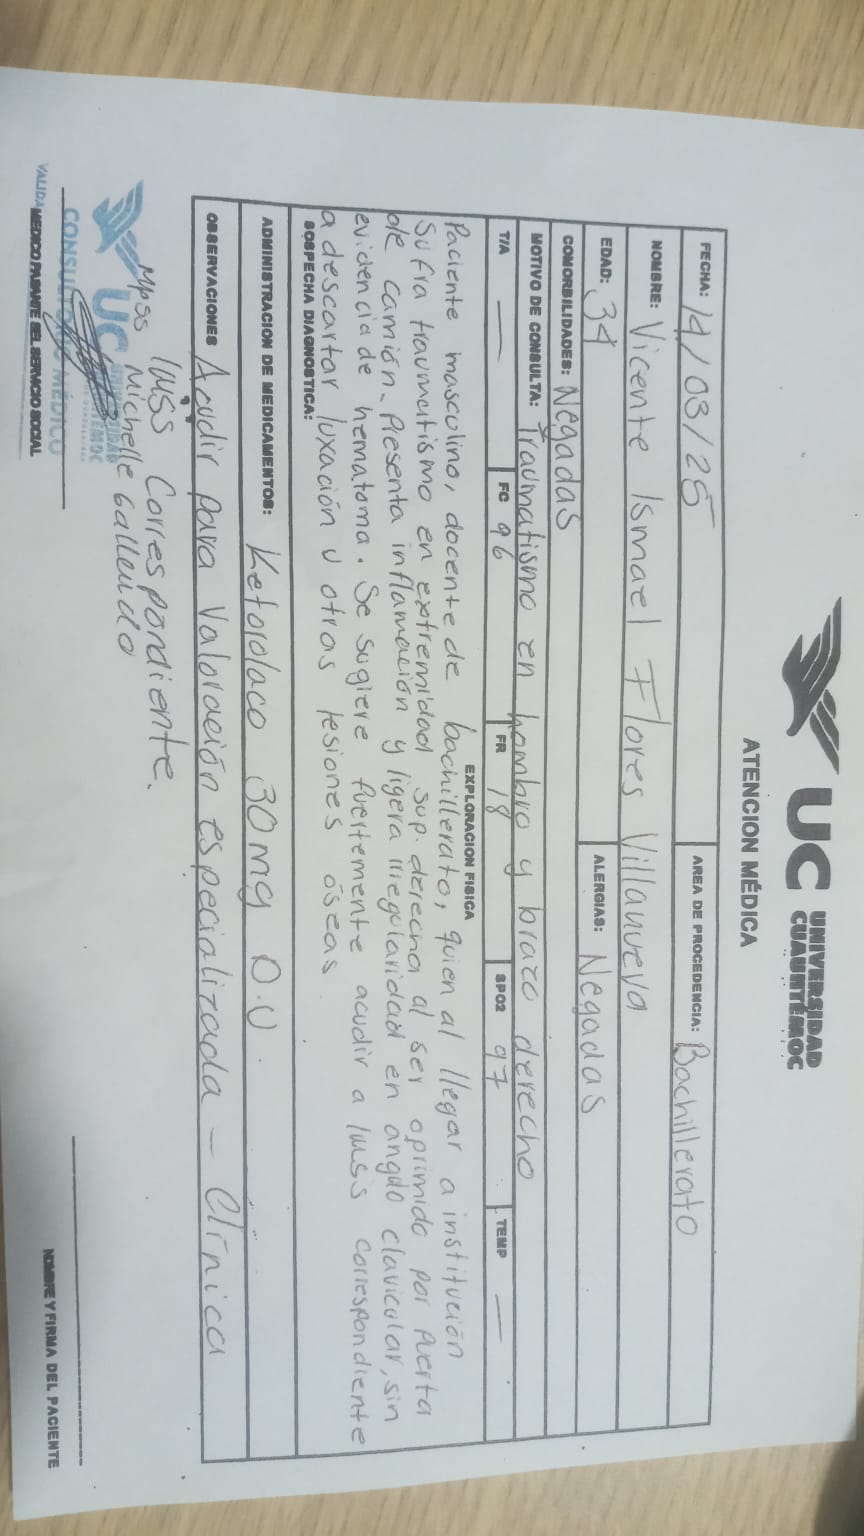 UC UNIVERSIDAD
CUAUHTÉMOC
ATENCION MÉDICA
FECHA: 14/03/25 AREA DE PROCEDENCIA: Bachillerato
NOMBRE: Vicente Ismael Flores Villanueva
EDAD: 34 ALERGIAS: Negadas
COMORBILIDADES: Negadas
MOTIVO DE CONSULTA: Traumatismo en hombro y brazo derecho
T/A — FC 96 FR 18 SPO2 97 TEMP —
EXPLORACION FISICA
Paciente masculino, docente de bachillerato, quien al llegar a institución
sufra traumatismo en extremidad sup. derecha al ser oprimido por puerta
de camión. Presenta inflamación y ligera irregularidad en angulo clavicular, sin
evidencia de hematoma. Se sugiere fuertemente acudir a IMSS correspondiente
SOSPECHA DIAGNOSTICA:
a descartar luxación u otras lesiones óseas.
ADMINISTRACION DE MEDICAMENTOS: Ketorolaco 30mg D.U.
OBSERVACIONES Acudir para valoración especializada – Clínica
IMSS Correspondiente.
MPSS Michelle
UC UNIVERSIDAD
CUAUHTÉMOC
CONSULTORIO MÉDICO
MEDICO PASANTE DEL SERVICIO SOCIAL
NOMBRE Y FIRMA DEL PACIENTE